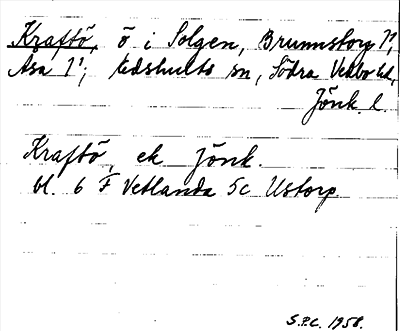 Kraftö, ö i Solgen, Brunnstorp 1¹,
Åsa 1¹; Edshults sn, Södra Vedbo hd,
Jönk. l.
Kraftö, ek Jönk.
bl. 6 F Vetlanda 5c Ustorp
S.P.C. 1958.